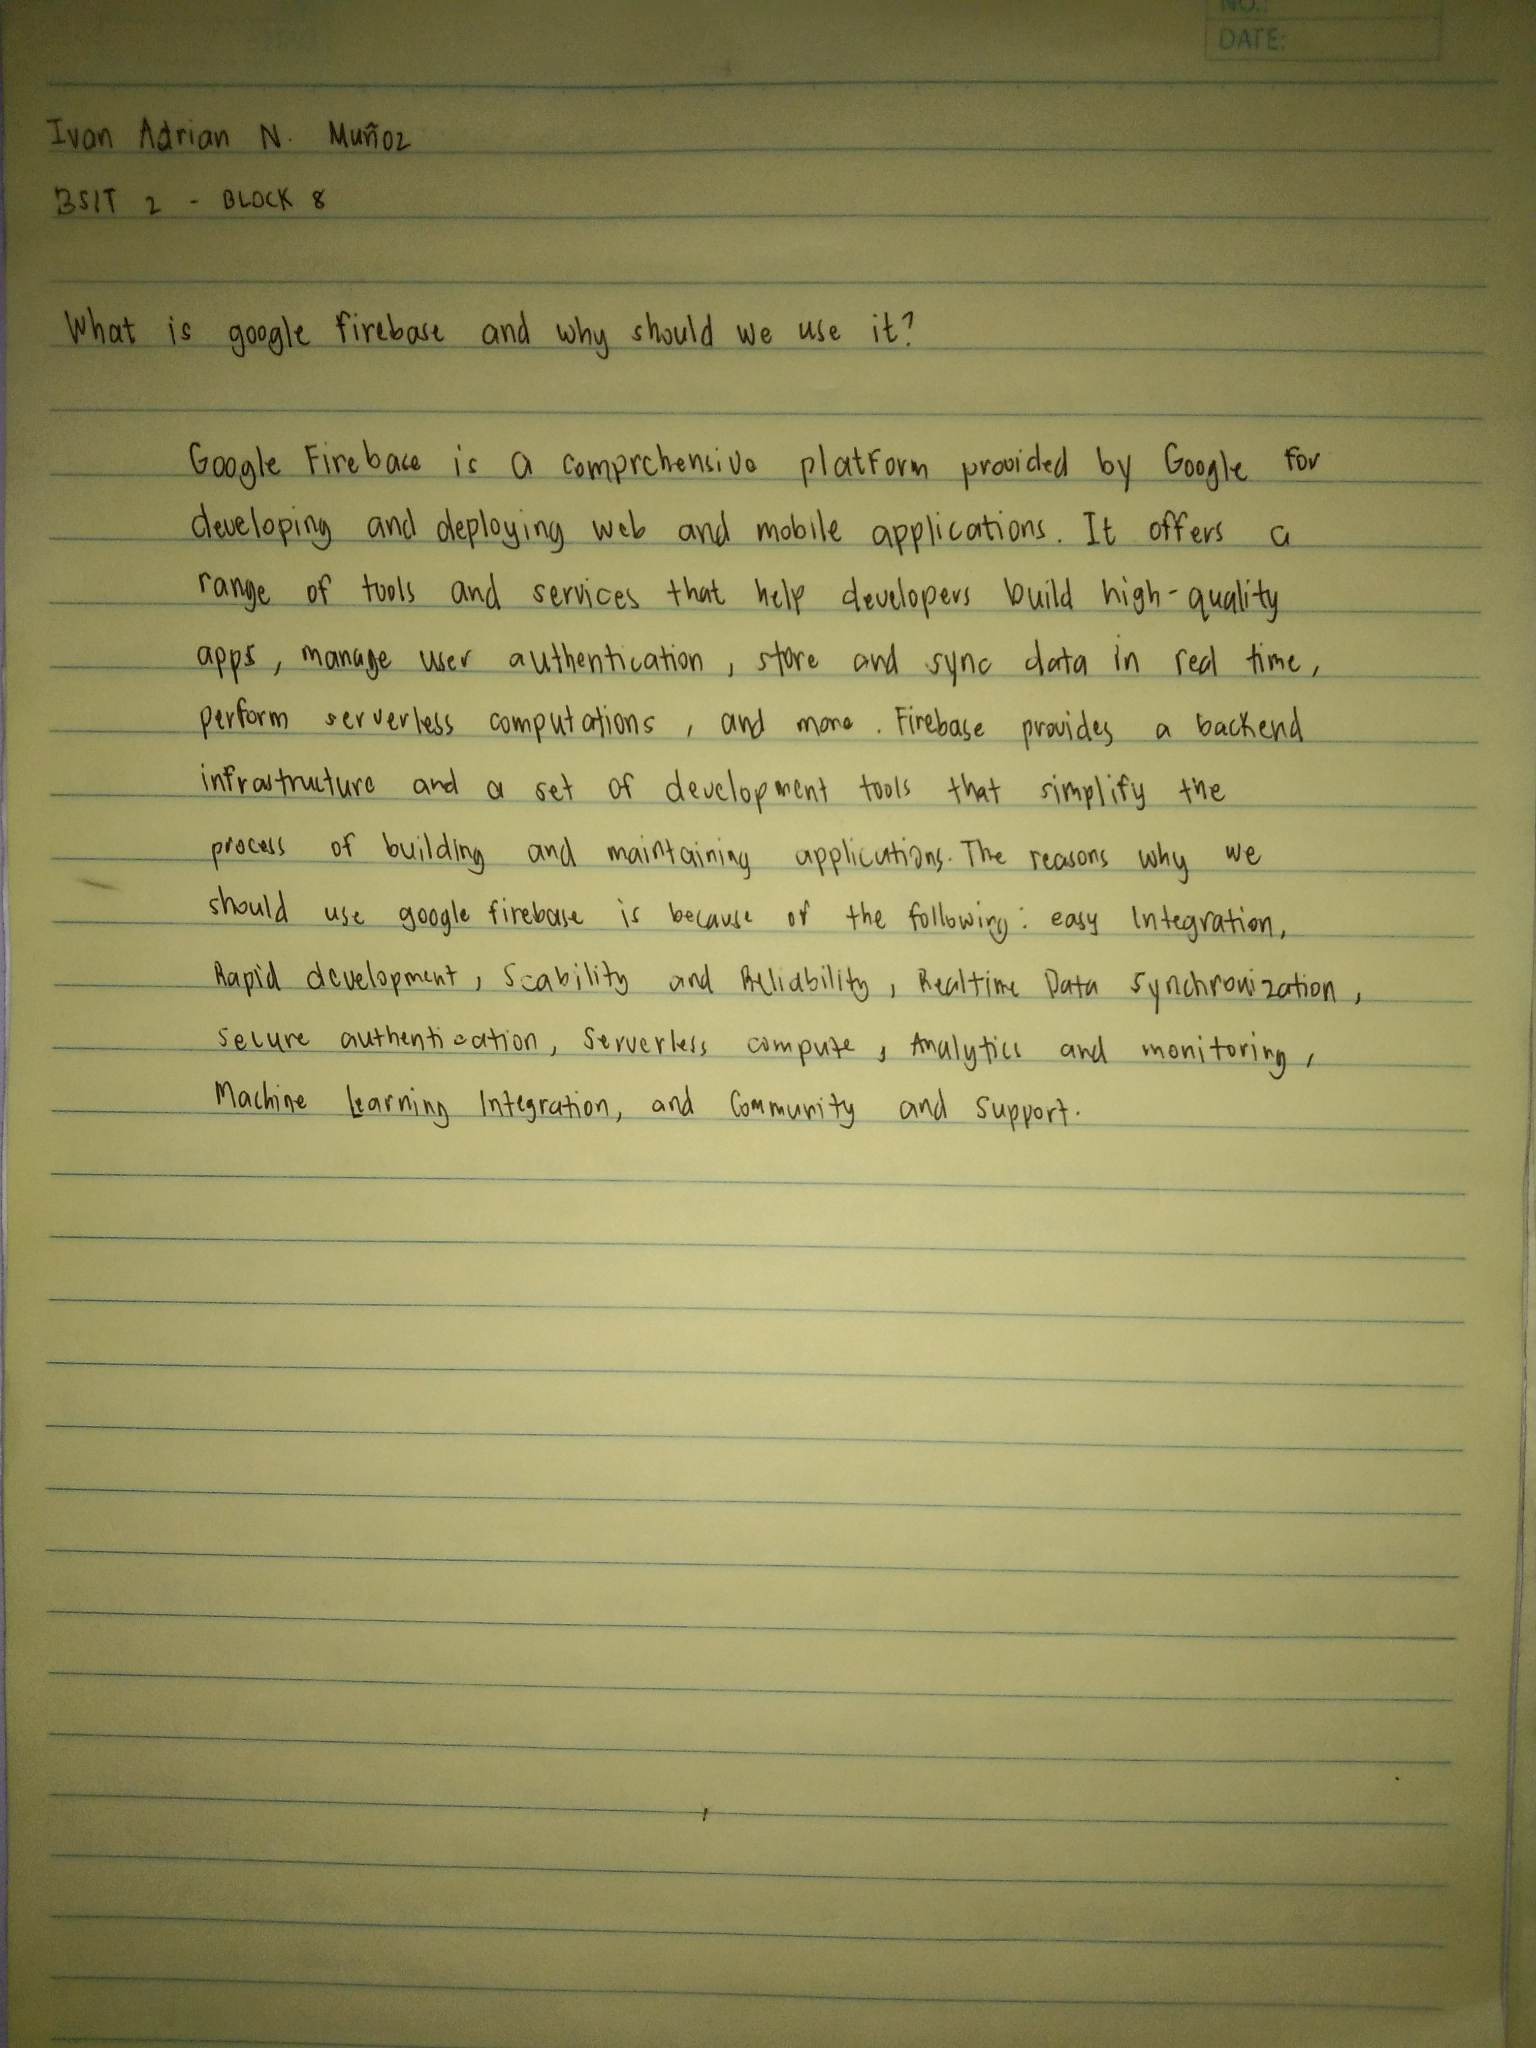 NO.:
DATE:
Ivan Adrian N. Muñoz
BSIT 2 - BLOCK 8
What is google firebase and why should we use it?
Google Firebase is a comprehensive platform provided by Google for
developing and deploying web and mobile applications. It offers a
range of tools and services that help developers build high-quality
apps, manage user authentication, store and sync data in real time,
perform serverless computations, and more. Firebase provides a backend
infrastructure and a set of development tools that simplify the
process of building and maintaining applications. The reasons why we
should use google firebase is because of the following: easy Integration,
Rapid development, Scability and Reliability, Realtime Data Synchronization,
secure authentication, Serverless compute, Analytics and monitoring,
Machine Learning Integration, and Community and Support.